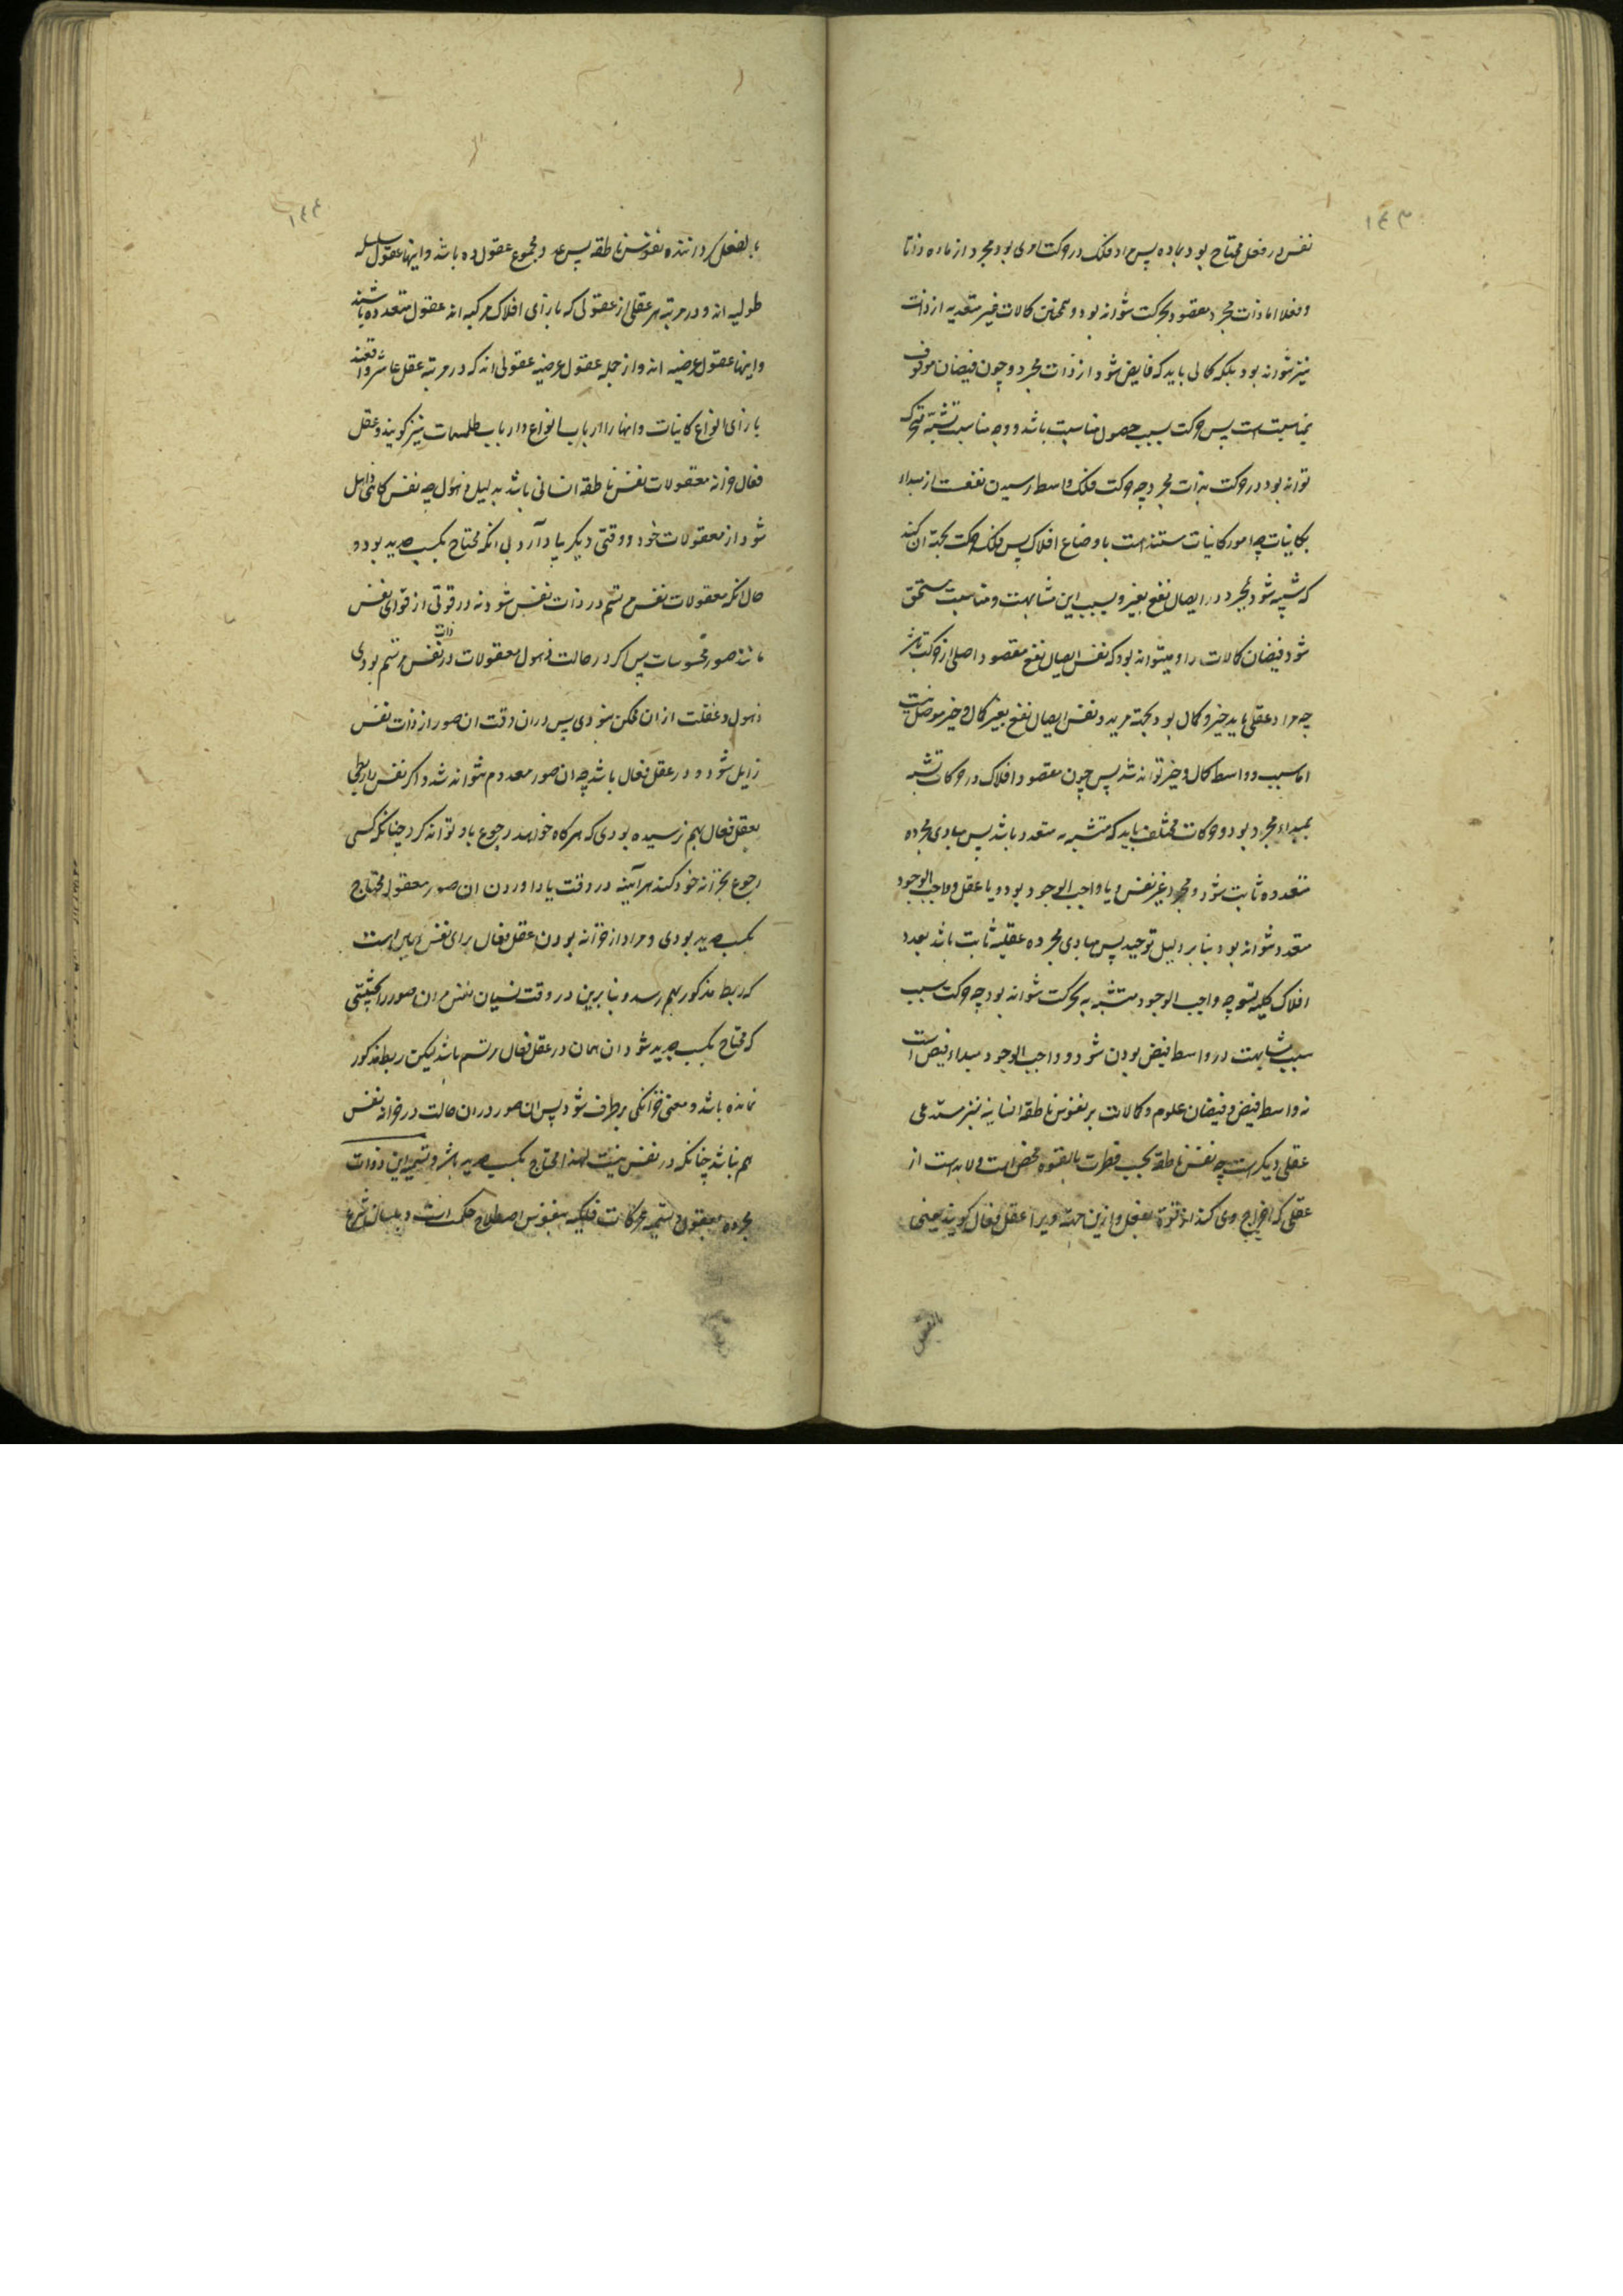 ۱۴۳
نفس در فعل محتاج بود بماده پس مراد فلک در حرکت امری بود مجرد از ماده ذاتا
و فعلا اما ذات مجرد مقصود بحرکت نتواند بود و همچنین کمالات غیر متعدیه از ذات
نیز نتواند بود بلکه کمالی باید که فایض شود از ذات مجرد و چون فیضان موقوف
بمناسبت است پس حرکت سبب حصول مناسبت باشد و وجه مناسبت تشبه متحرک
تواند بود در حرکت بذات مجرد چه حرکت فلک واسطه رسیدن نفعست از مبداء
بکاینات چه امور کاینات مستند است باوضاع افلاک پس فلک حرکت بجهة ان کند
که شبیه شود بمجرد در ایصال نفع بغیر و بسبب این مشابهت و مناسبت مستحق
شود فیضان کمالات را و نمیتواند بود که نفس ایصال نفع مقصود اصلی از حرکت باشد
چه مراد عقلی باید خیر و کمال بود بجهة مرید و نفس ایصال نفع بغیر کمال و خیر موصل نیست
اما سبب و واسطه کمال و خیر تواند شد پس چون مقصود افلاک در حرکات تشبه
بمبداء مجرد بود و حرکات مختلف باید که متشبه به متعدد باشد پس مبادی مجرده
متعدده ثابت شود و مجرد غیر نفس یا واجب الوجود بود و یا عقل و واجب الوجود
متعدد نتواند بود بنا بر دلیل توحید پس مبادی مجرده عقلیه ثابت باشد بعدد
افلاک کلیه چه واجب الوجود متشبه به بحرکت نتواند بود چه حرکت سبب
سبب مشابهت در واسطه فیض بودن شود و واجب الوجود مبداء فیض است
نه واسطه فیض و فیضان علوم و کمالات بر نفوس ناطقه انسانیه نیز مستدعی
عقلی دیگر است چه نفس ناطقه بحسب فطرت بالقوه محض است و لابد است از
عقلی که اخراج وی کند از قوة بفعل و ازین جهة ویرا عقل فعال گویند یعنی
بالفعل
۱۴۴
بالفعل گرداننده نفوس ناطقه پس و مجموع عقول ده باشد و اینها عقول سلسله
طولیه اند و در مرتبه هر عقلی از عقولی که بازای افلاک مرکبه اند عقول متعدده باشند
و اینها عقول عرضیه اند و از جمله عقول عرضیه عقولی اند که در مرتبه عقل عاشر واقعند
بازای انواع کاینات و انها را ارباب انواع و ارباب طلسمات نیز گویند و عقل
فعال خزانه معقولات نفس ناطقه انسانی باشد بدلیل ذهول چه نفس گاهی ذاهل
شود از معقولات خود و وقتی دیگر بیاد آرد بی انکه محتاج بکسب جدید بود و
حال انکه معقولات نفس مرتسم در ذات نفس شود نه در قوتی از قوای نفس
مانند صور محسوسات پس اگر در حالت ذهول معقولات در ذات نفس مرتسم بودی
ذهول و غفلت از ان ممکن نبودی پس در ان وقت ان صور از ذات نفس
زایل شود و در عقل فعال باشد چه ان صور معدوم نتواند شد و اگر نفس را ربطی
بعقل فعال بهم نرسیده بودی که هرگاه خواهد رجوع باو تواند کرد چنانکه کسی
رجوع بخزانه خود کند هرآینه در وقت یاد اوردن ان صور معقول محتاج
بکسب جدید بودی و مراد از خزانه بودن عقل فعال برای نفس همین است
که ربط مذکور بهم رسد و بنابرین در وقت نسیان نفس مر ان صور را بحیثیتی
که محتاج بکسب جدید شود ان همان در عقل فعال مرتسم باشد لیکن ربط مذکور
نمانده باشد و معنی خزانگی برطرف شود پس ان صور در ان حالت در خزانه نفس
هم نباشد چنانکه در نفس نیست لهذا محتاج بکسب جدید باشد و تسمیه این ذوات
مجرده بعقول و تسمیه محرکات فلکیه بنفوس اصطلاح حکما است و بلسان شرع